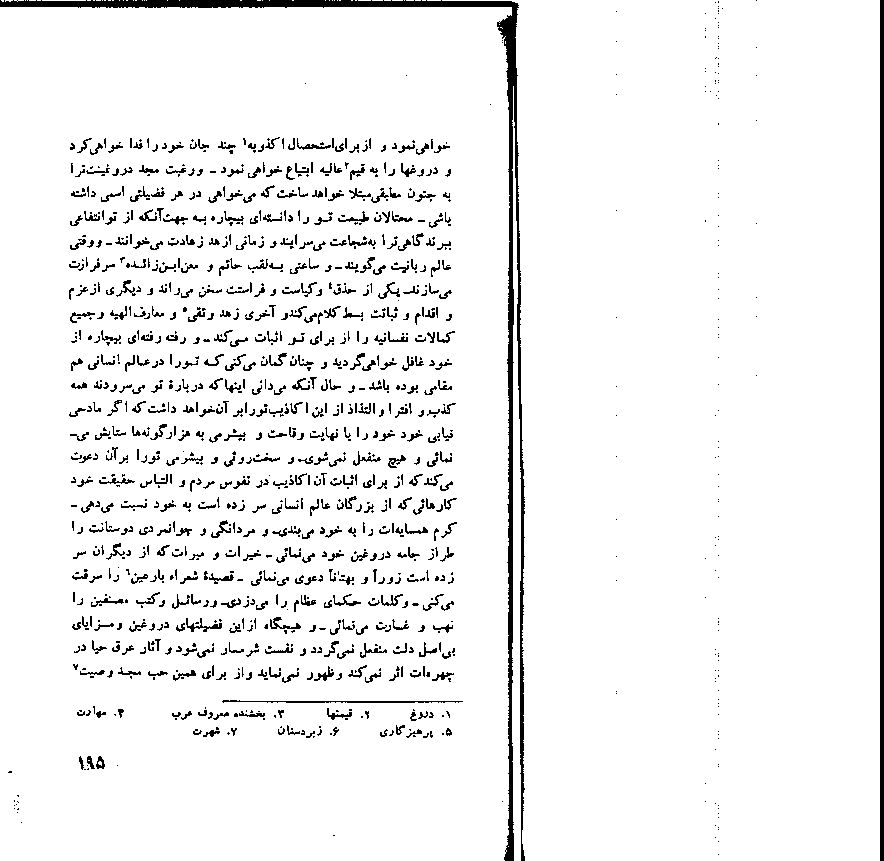 خواهی‌نمود و از برای‌استحصال اکذوبه۱ چند جان خود را فدا خواهی‌کرد
و دروغها را به قیم۲ عالیه ابتیاع خواهی نمود – ورغبت مجد دروغینت‌ترا
به جنون مطابقی‌مبتلا خواهد ساخت که می‌خواهی در هر فضیلتی اسمی داشته
باشی – محتالان طبیعت تـو را دانسته‌ای بیچاره بـه جهت‌آنکه از توانتفاعی
ببرند گاهی‌ترا به‌شجاعت می‌سرایند و زمانی ازهد زهادت می‌خوانند – ووقتی
عالم ربانیت می‌گویند – و ساعتی بـه‌لقب حاتم و معن‌ابـن‌زائـده۳ سرفرازت
می‌سازند. یکی از حذق۴ وکیاست و فراستت سخن می‌راند و دیگری ازعزم
و اقدام و ثباتت بسط کلام‌می‌کندو آخری زهد وتقی۵ و معارف‌الهیه وجمیع
کمالات نفسانیه را از برای تـو اثبات مـی‌کند – و رفته رفته‌ای بیچاره از
خود غافل خواهی‌گردید و چنان گمان می‌کنی‌کـه تـورا درعـالم انسانی هم
مقامی بوده باشد – و حال آنکه می‌دانی اینهاکه دربارهٔ تو می‌سرودند همه
کذب و افترا و التذاذ از این اکاذیب‌تورابر آن‌خواهد داشت‌که اگر مادحی
نیابی خود خود را با نهایت وقاحت و بیشرمی به هزارگونه‌ها ستایش می–
نمائی و هیچ منفعل نمی‌شوی– و سخت‌روئی و بیشرمی تورا برآن دعوت
می‌کندکه از برای اثبات آن اکاذیب در نفوس مردم و التباس حقیقت خود
کارهائی‌که از بزرگان عالم انسانی سر زده است به خود نسبت می‌دهی –
کرم همسایه‌ات را به خود می‌بندی– و مردانگی و جوانمردی دوستانت را
طراز جامه دروغین خود می‌نمائی – خیرات و مبرات‌که از دیگران سر
زده است زوراً و بهتاناً دعوی می‌نمائی – قصیدهٔ شعراء بارعین۶ را سرقت
می‌کنی – وکلمات حکمای عظام را می‌دزدی– ورسائـل وکتب مصنفین را
نهب و غـارت می‌نمائی – و هیچگاه ازاین فضیلتهای دروغین ومـزایای
بی‌اصل دلت منفعل نمی‌گردد و نفست شرمسار نمی‌شود و آثار عرق حیا در
چهره‌ات اثر نمی‌کند وظهور نمی‌نماید واز برای همین حب مجـد وصیت۷
۱. دروغ ۲. قیمتها ۳. بخشنده معروف عرب ۴. مهارت
۵. پرهیزگاری ۶. زبردستان ۷. شهرت
۱۹۵